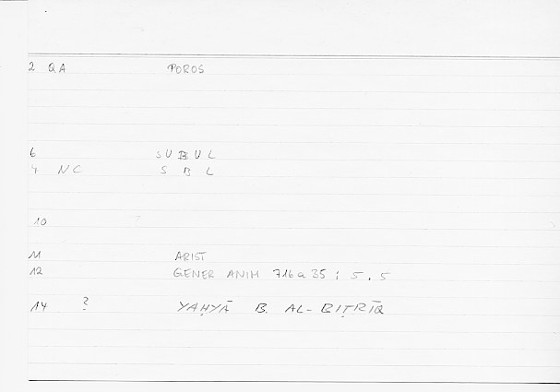 2 QA POROS
6 SUBUL
4 NC SBL
10
11 ARIST
12 GENER ANIM 716a35 ; 5.5
14 ? YAḤYĀ B. AL-BIṬRĪQ